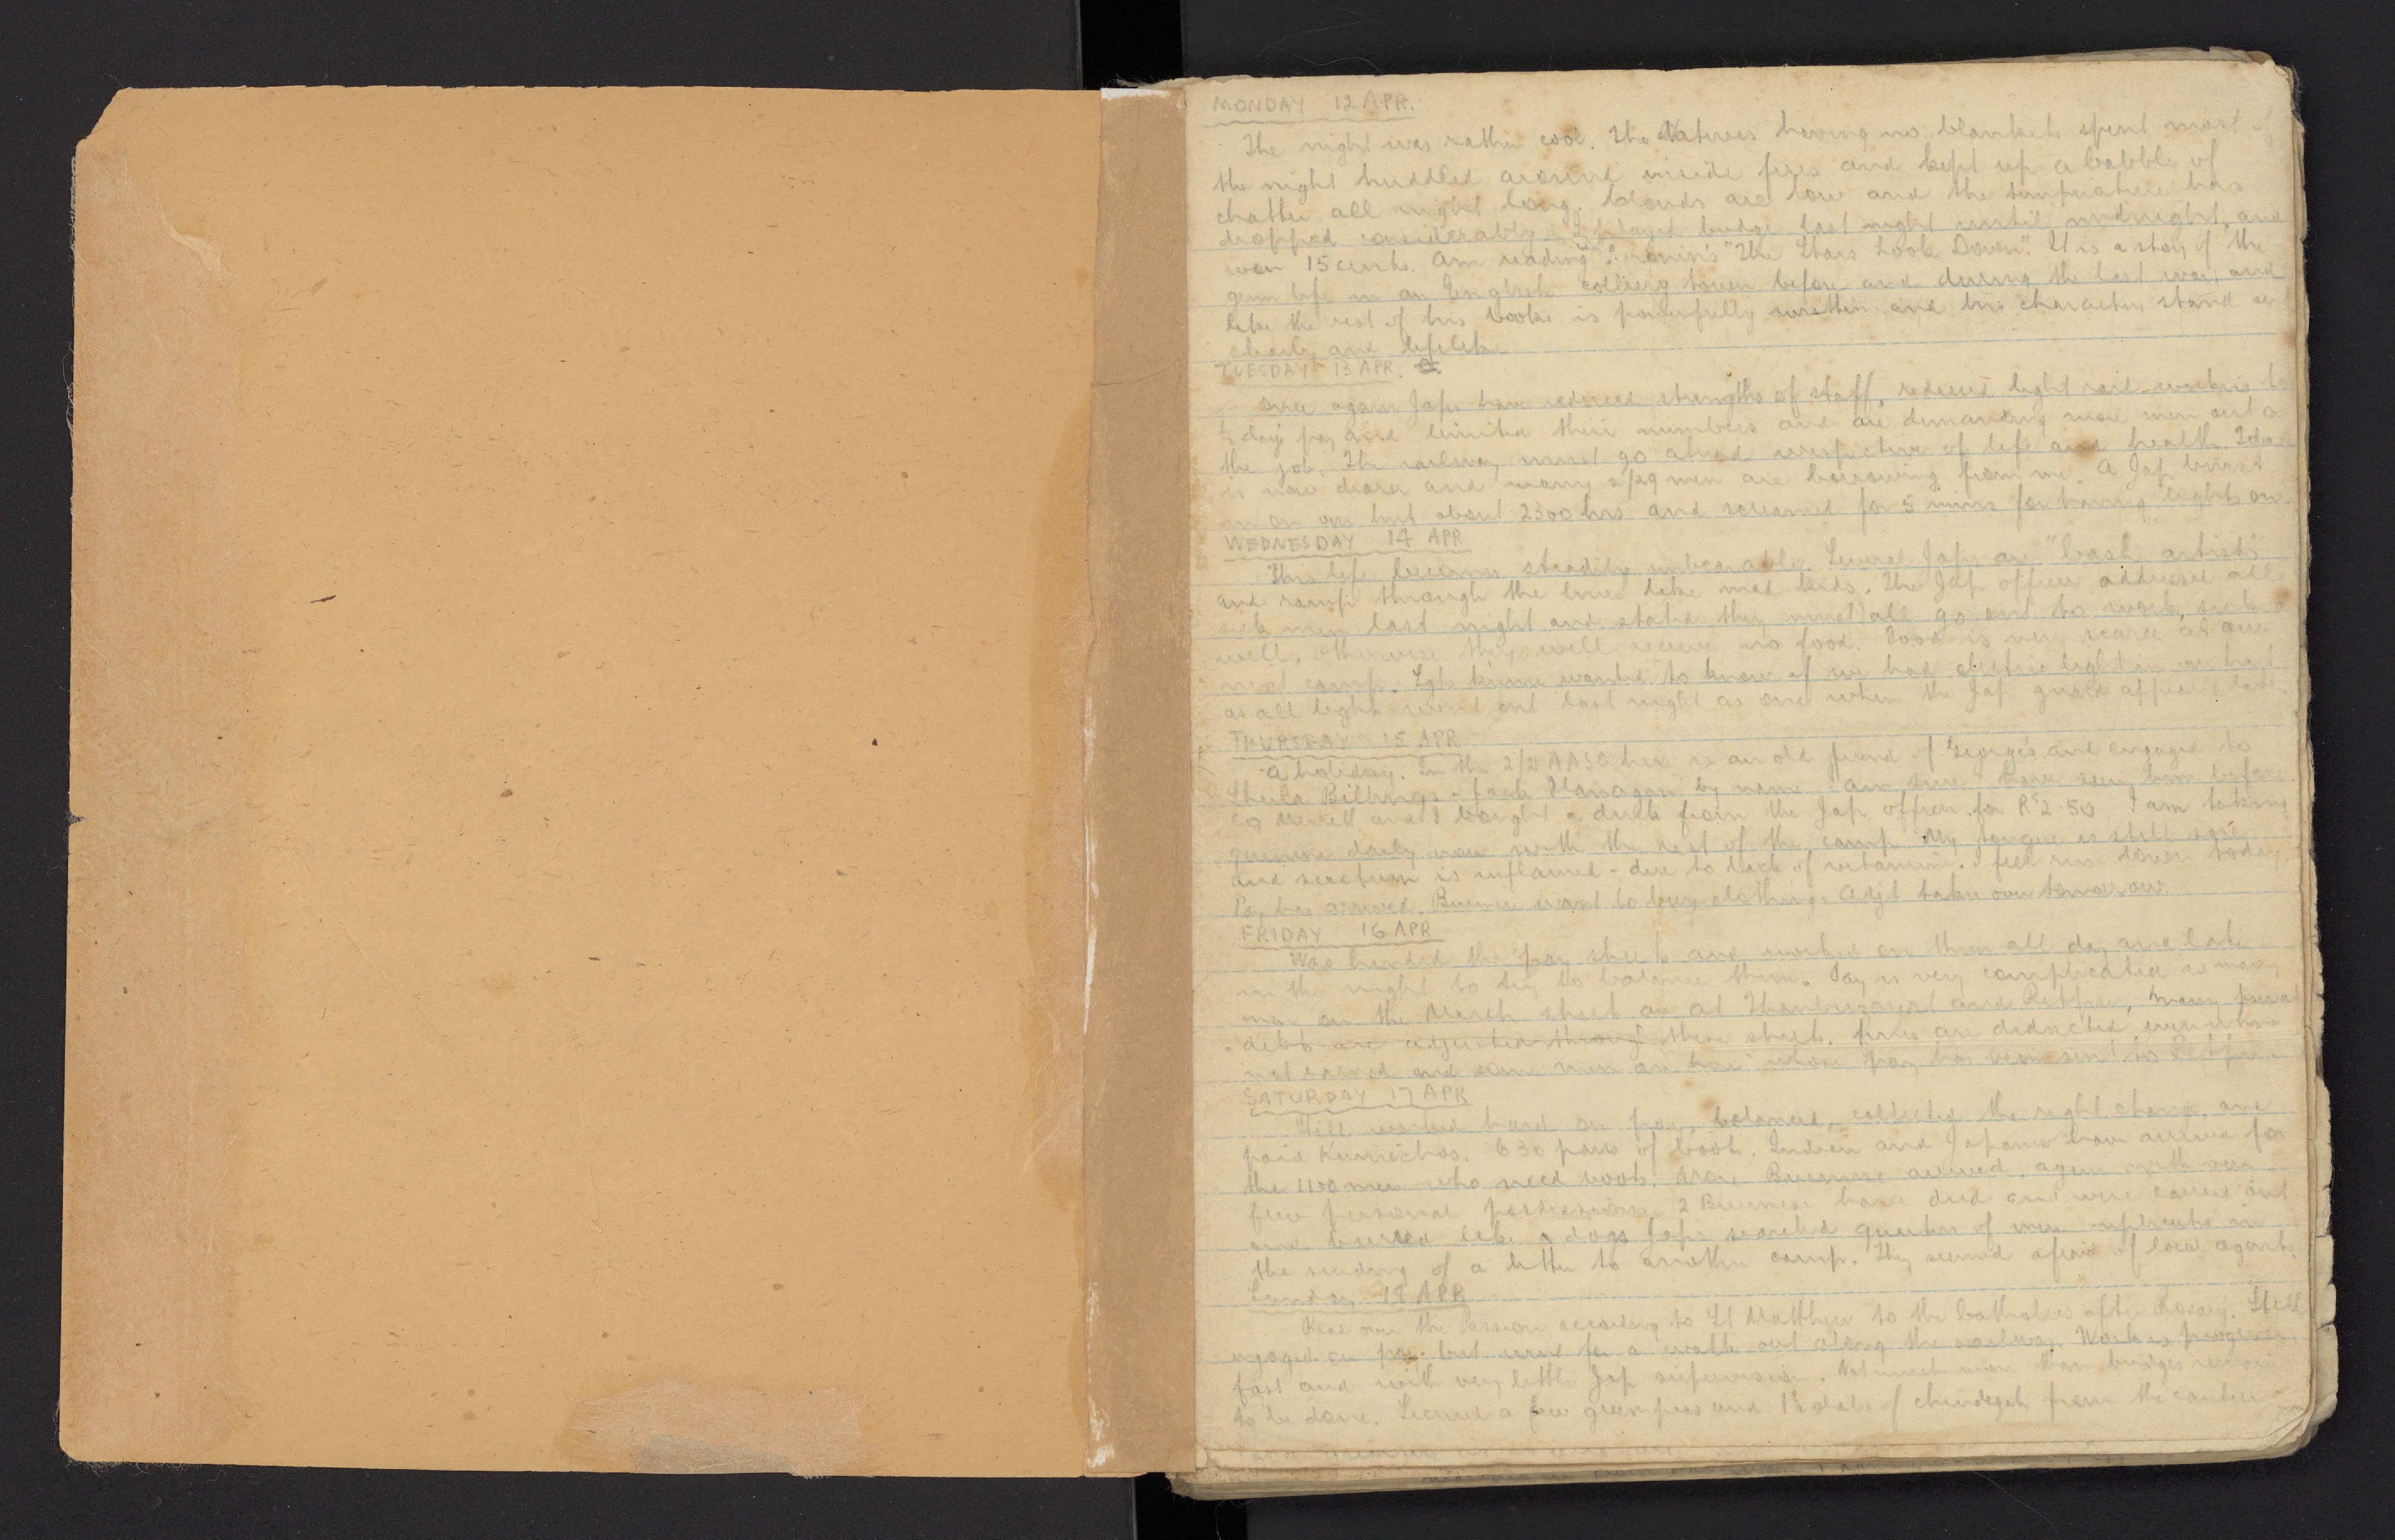 MONDAY 12 APR.
The night was rather cool. The Natives having no blankets spent most of
the night huddled around inside fires and kept up a babble of
chatter all night long. Clouds are low and the temperature has
dropped considerably. I played bridge last night until midnight and
won 15 cents. Am reading Cronin's "The Stars Look Down". It is a story of the
life in an English colliery town before and during the last war, and
like the rest of his books is powerfully written and his characters stand out
clearly and lifelike
TUESDAY 13 APR.
Once again Japs have reduced strengths of staff, reduced light sick workers to
½ day's pay and limited their numbers and are demanding more men out on
the job. The railway must go ahead irrespective of life and health.
is now dearer and many men are borrowing from me. A Jap burst
in on our hut about 2300 hrs and screamed for 5 mins for having lights on.
WEDNESDAY 14 APR
This life becomes steadily unbearable. Several Japs are "bash artists"
and romp through the lines like mad kids. The Jap officer addressed all
sick men last night and stated they must all go out to work, sick or
well, otherwise they will receive no food. Food is very scarce at our
next camp. wanted to know if we had electric light in our hut
as all lights went out last night as one when the Jap guard appeared
THURSDAY 15 APR
A holiday. In the 2/2 here is an old friend of George's and engaged to
Sheila Billings - Jack Flanagan by name. I am sure I have seen him before.
and I bought a duck from the Jap officer for Rs 2.50 I am taking
quinine daily now with the rest of the camp. My tongue is still sore
and scrotum is inflamed - due to lack of vitamins. I feel run down today.
Pay has arrived. Burmese want to buy clothing. Adjt takes over tomorrow.
FRIDAY 16 APR
Was handed the pay sheets and worked on them all day and late
in the night to try to balance them. Pay is very complicated as many
men on the March sheet are at Thanbyuzayat and Retpu, many personal
debts are adjusted through these sheets, fines are deducted even where
not earned and some men are here whose pay has been sent to Retpu
SATURDAY 17 APR
Still worked hard on pay, balanced, collected the right change and
paid Kumichos. 630 pairs of boots, Indian and Japanese have arrived for
the 1100 men who need boots. More Burmese arrived, again with very
few personal possessions. 2 Burmese have died and were carried out
and buried like dogs. Japs searched quarters of men implicated in
the sending of a letter to another camp. They seemed afraid of local agents.
Sunday 18 APR
Read over the Passion according to St Matthew to the Catholics after Rosary. Still
engaged on pay but went for a walk out along the railway. Work is progressing
fast and with very little Jap supervision. Not much more than bridges remain
to be done. Secured a few green peas and 1½ slabs of chindegah from the canteen